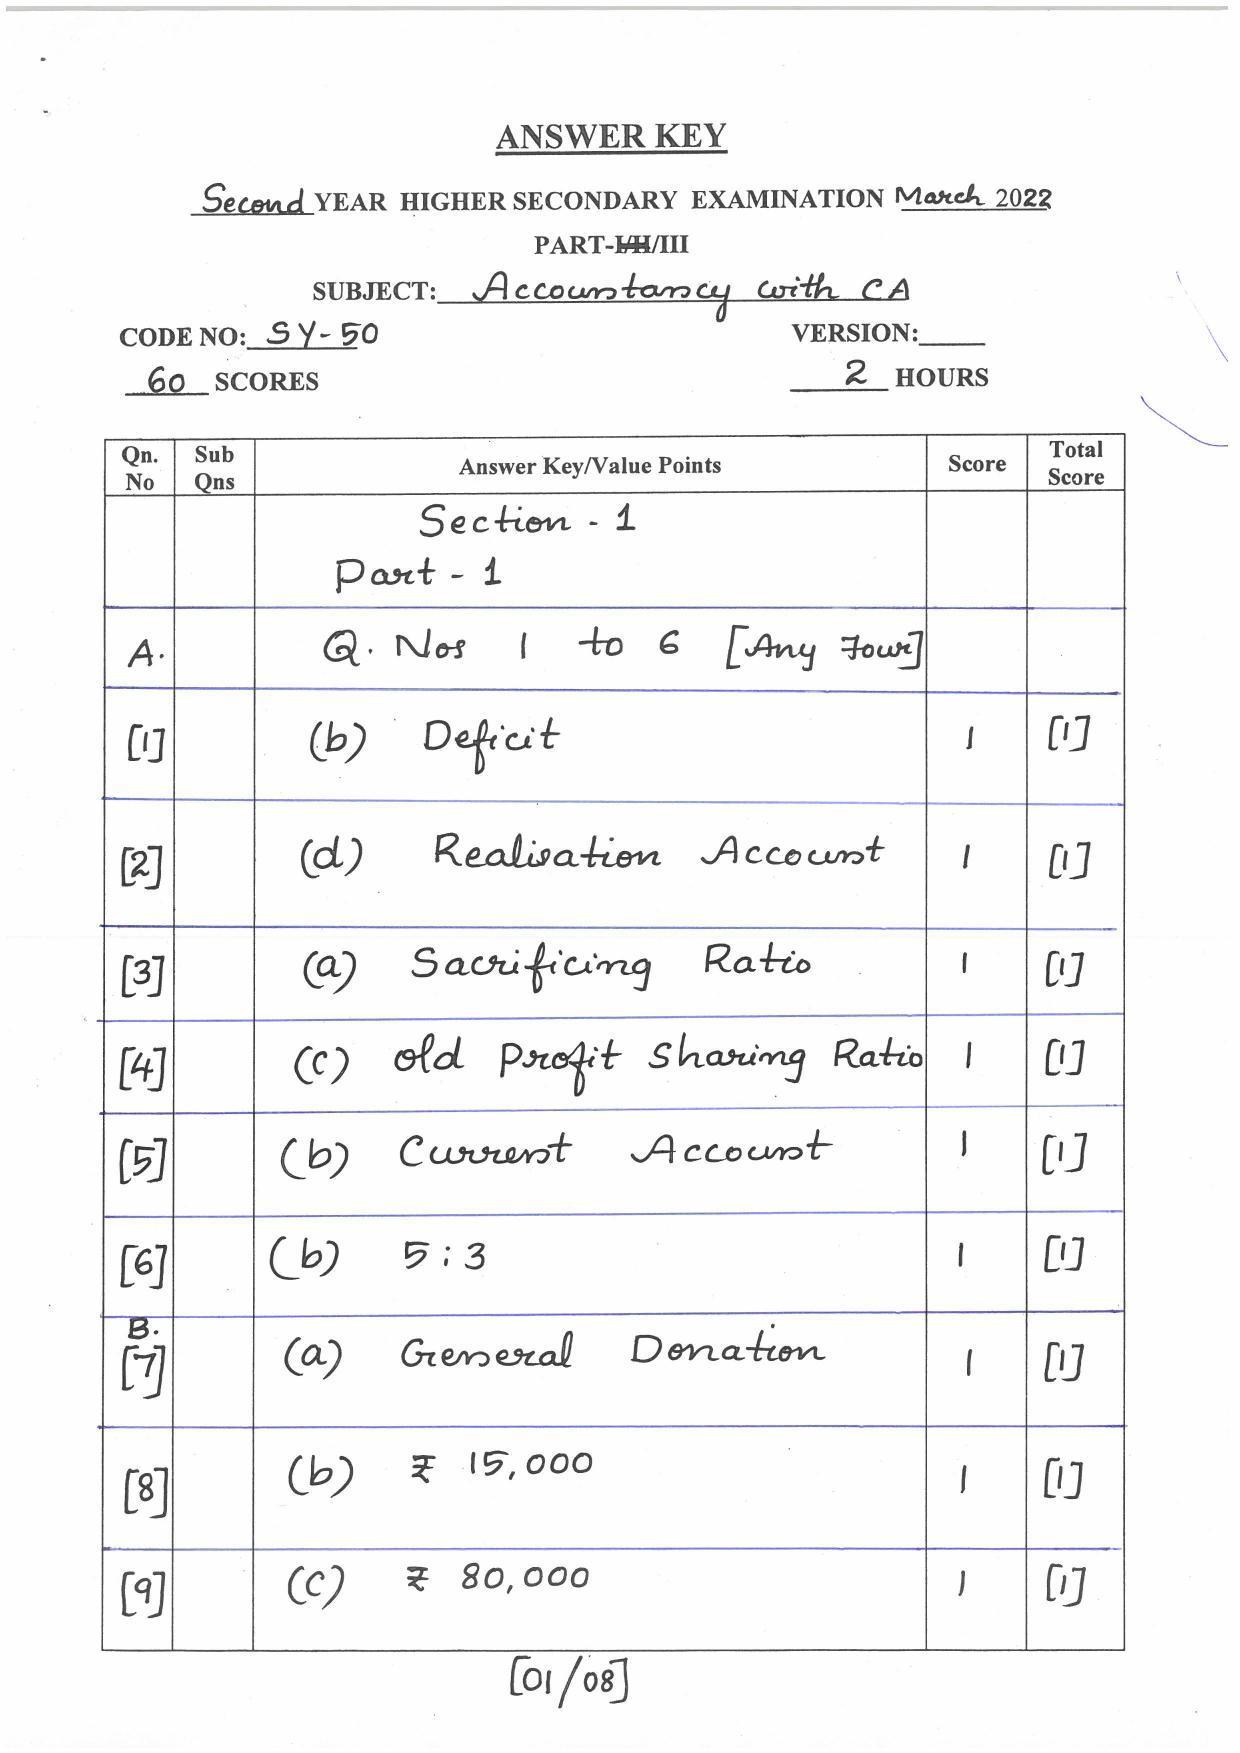 ANSWER KEY
Second YEAR HIGHER SECONDARY EXAMINATION March 2022
PART-I/II/III
SUBJECT: Accountancy with CA
CODE NO: SY-50 VERSION:
60 SCORES 2 HOURS
Qn. No Sub Qns Answer Key/Value Points Score Total Score
Section - 1
Part - 1
A. Q. Nos 1 to 6 [Any Four]
[1] (b) Deficit 1 [1]
[2] (d) Realisation Account 1 [1]
[3] (a) Sacrificing Ratio 1 [1]
[4] (c) old Profit sharing Ratio 1 [1]
[5] (b) Current Account 1 [1]
[6] (b) 5:3 1 [1]
B.
[7] (a) General Donation 1 [1]
[8] (b) ₹ 15,000 1 [1]
[9] (c) ₹ 80,000 1 [1]
[01/08]